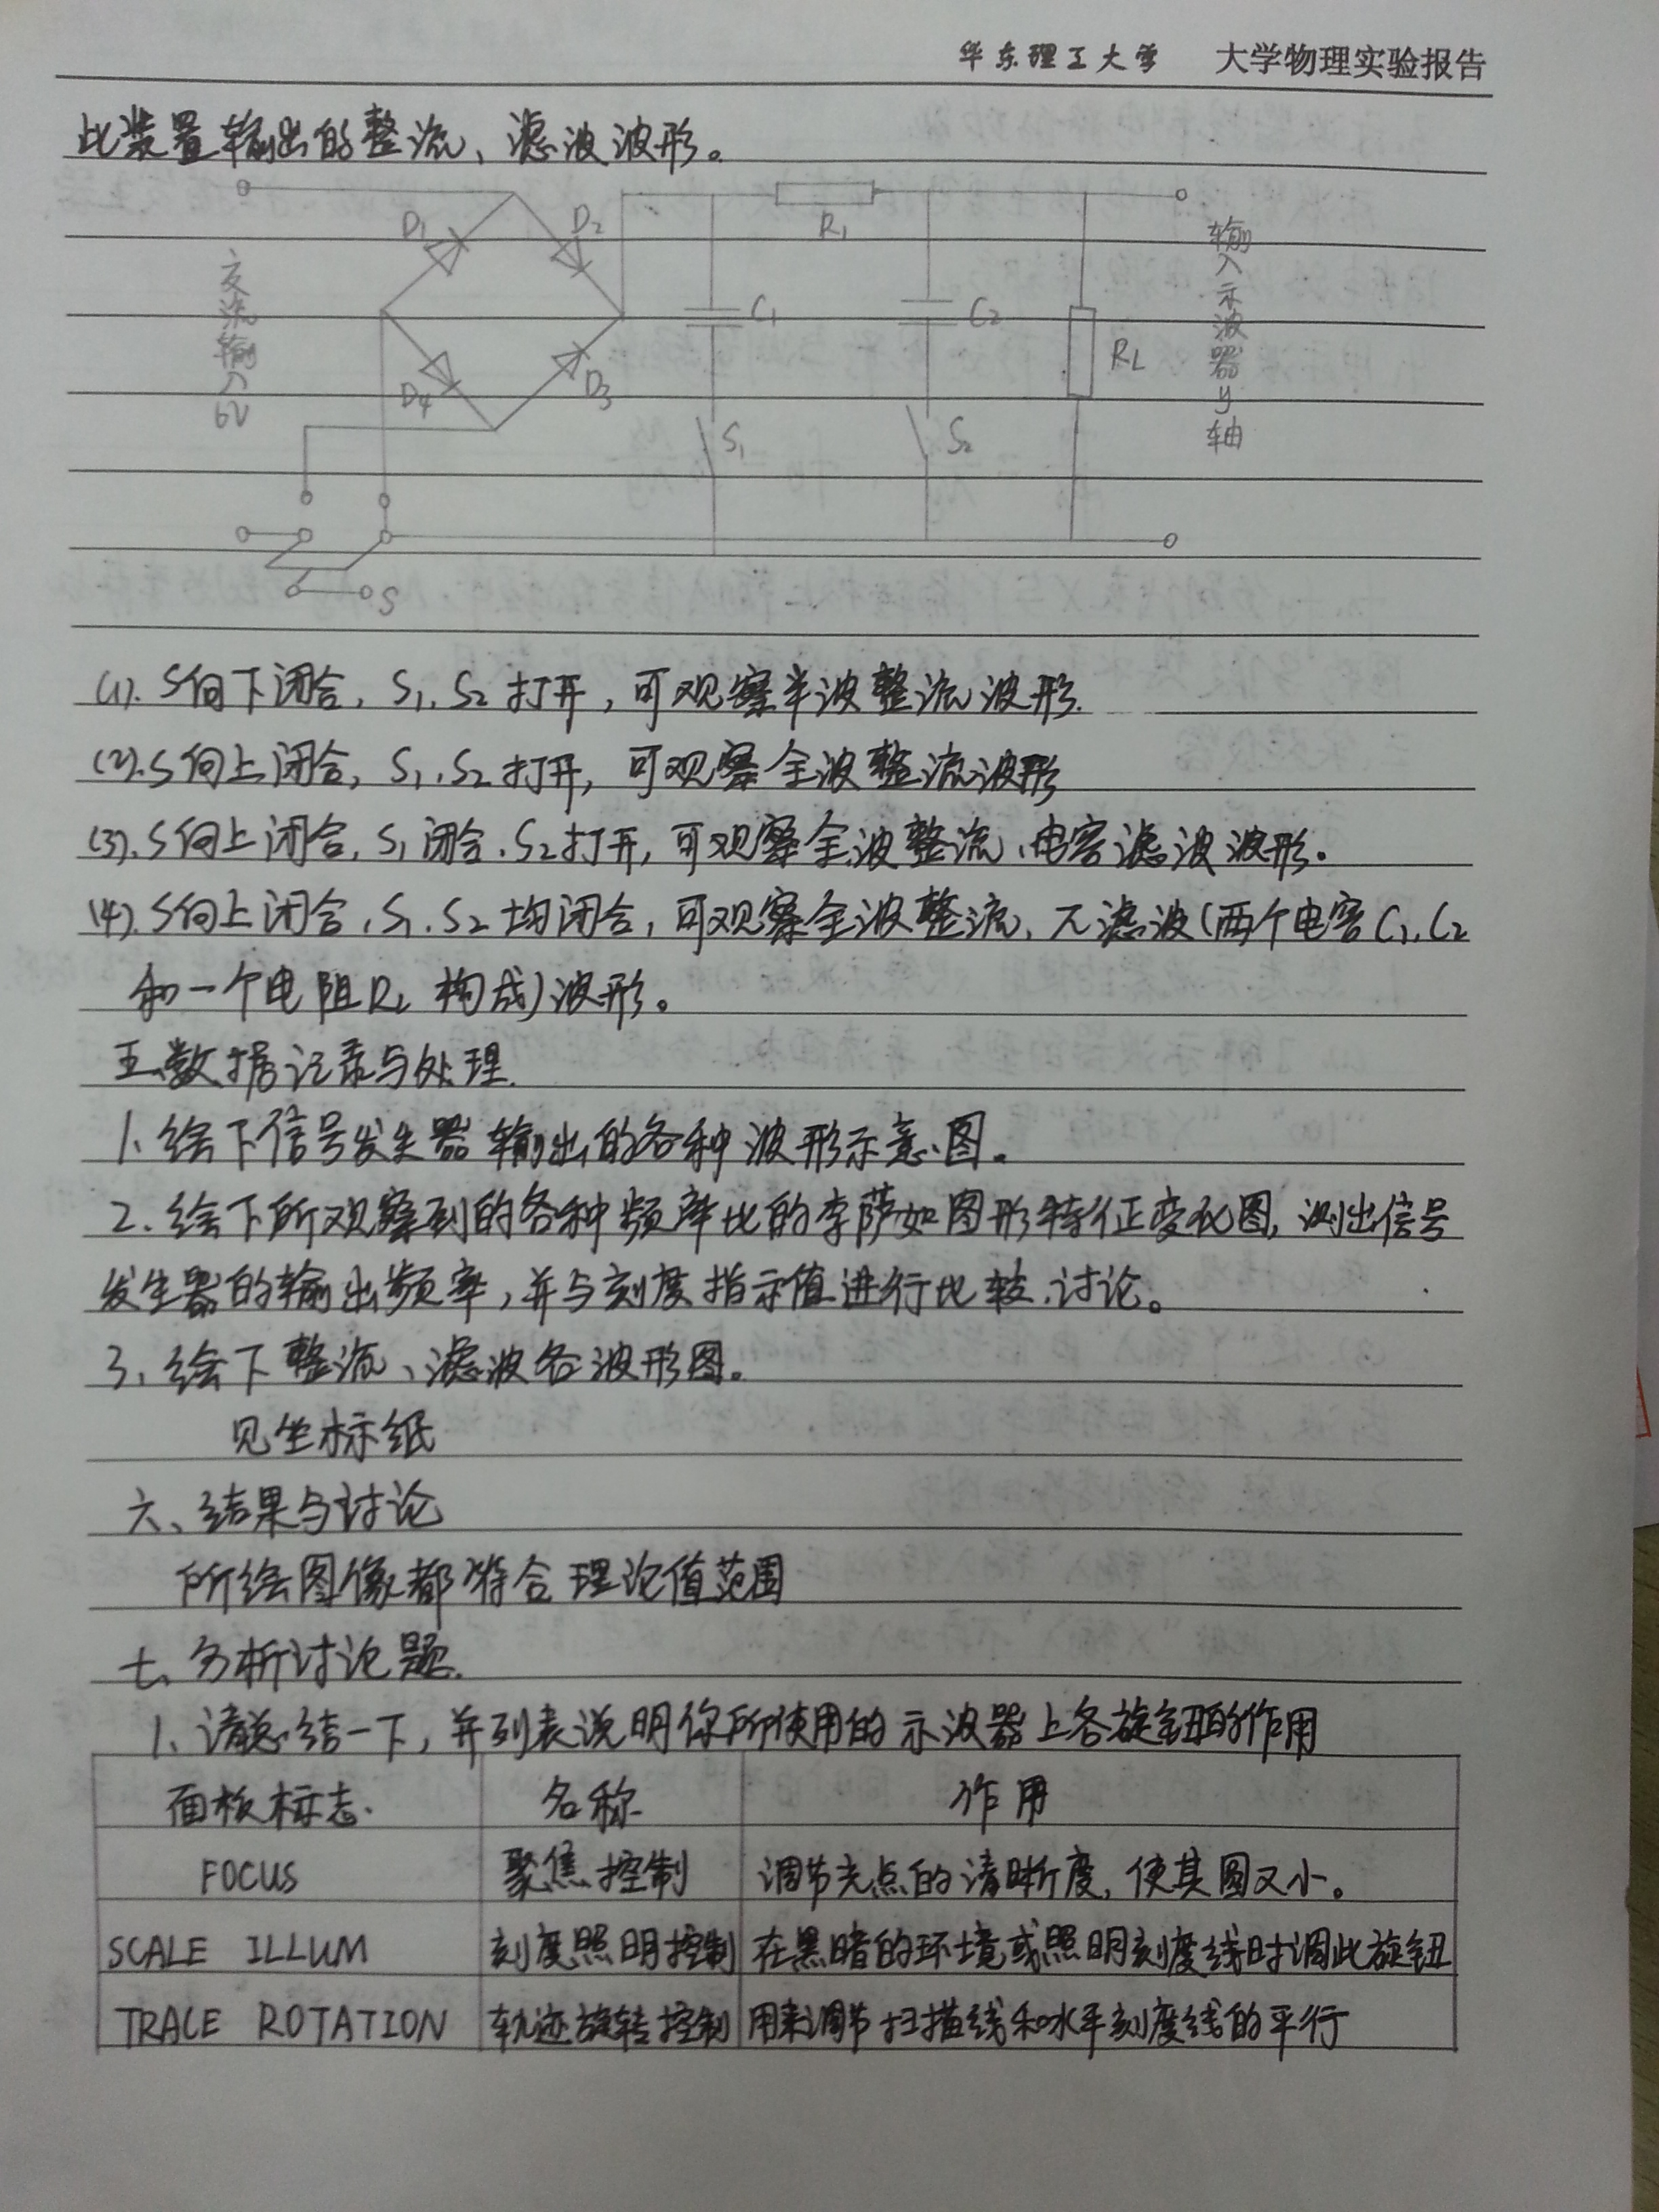 华东理工大学 大学物理实验报告
此装置输出的整流、滤波波形。
D1
D2
R1
交流输入6V
C1
C2
RL
输入示波器y轴
D4
D3
S1
S2
S
(1). S向下闭合, S1, S2 打开, 可观察半波整流波形.
(2). S向上闭合, S1, S2 打开, 可观察全波整流波形
(3). S向上闭合, S1闭合, S2打开, 可观察全波整流、电容滤波波形。
(4). S向上闭合, S1, S2 均闭合, 可观察全波整流、兀滤波(两个电容C1, C2
和一个电阻RL 构成)波形。
五、数据记录与处理.
1、绘下信号发生器输出的各种波形示意图。
2. 绘下所观察到的各种频率比的李萨如图形特征变化图, 测出信号
发生器的输出频率, 并与刻度指示值进行比较、讨论。
3、绘下整流、滤波各波形图。
见坐标纸
六、结果与讨论
所绘图像都符合理论值范围
七、分析讨论题.
1、请总结一下, 并列表说明你所使用的示波器上各旋钮的作用
面板标志. 名称 作用
FOCUS 聚焦控制 调节光点的清晰度, 使其圆又小。
SCALE ILLUM 刻度照明控制 在黑暗的环境或照明刻度线时调此旋钮
TRACE ROTATION 轨迹旋转控制 用来调节扫描线和水平刻度线的平行